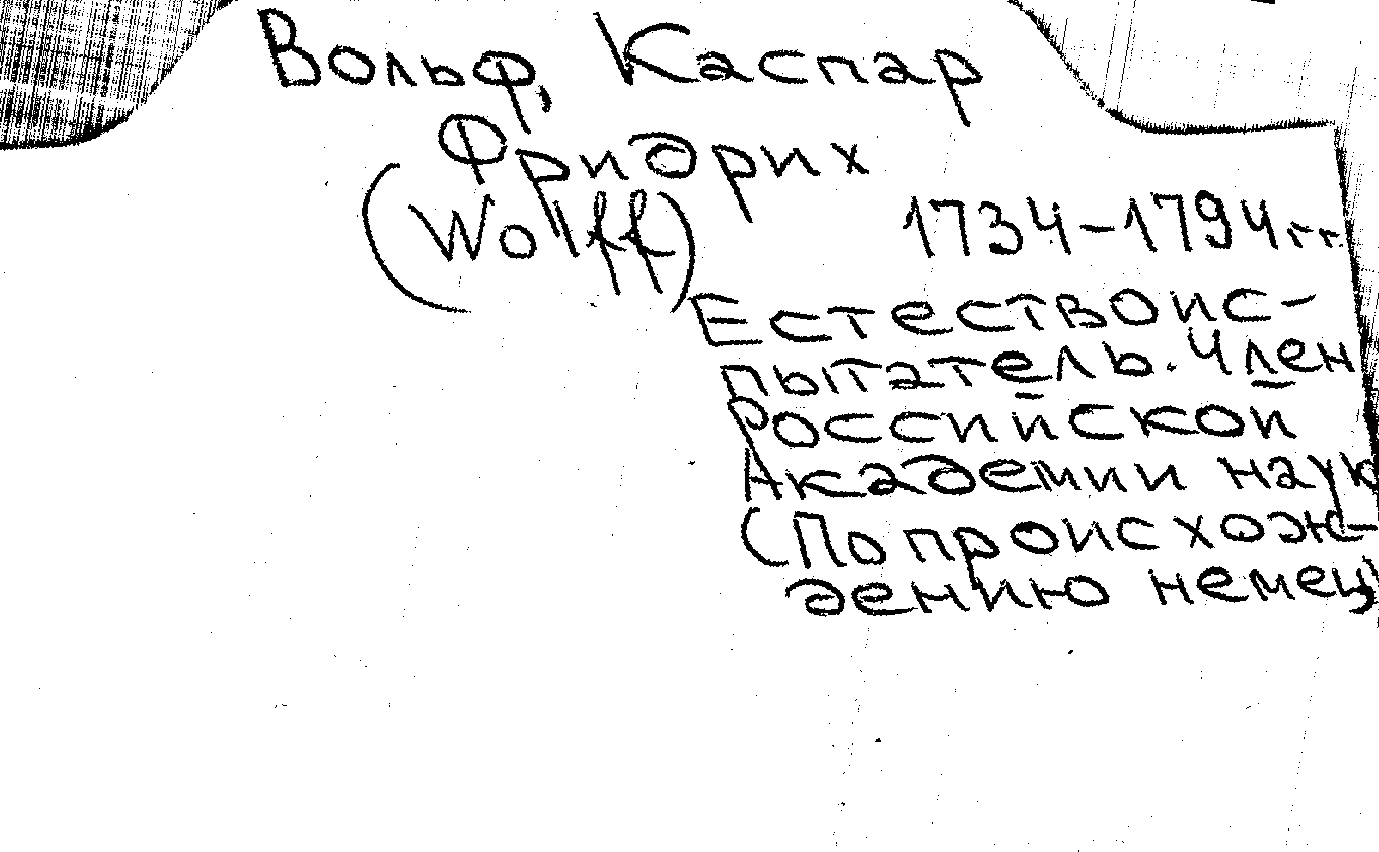 Вольф, Каспар
Фридрих
(Wolff)
1734-1794 гг.
Естествоис-
пытатель. Член
Российской
Академии наук
(По происхож-
дению немец)